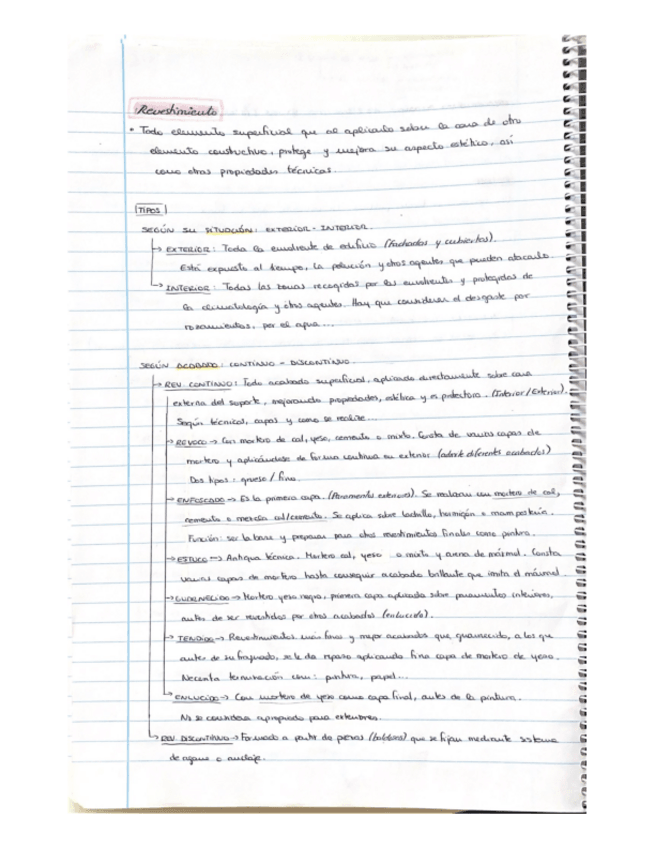 Revestimiento
• Todo elemento superficial que al aplicarlo sobre la cara de otro
elemento constructivo, protege y mejora su aspecto estético, así
como otras propiedades técnicas.
TIPOS
SEGÚN SU SITUACIÓN: EXTERIOR - INTERIOR.
→ EXTERIOR: Toda la envolvente de edificio (fachadas y cubiertas).
Está expuesto al tiempo, la polución y otros agentes que pueden atacarlo
→ INTERIOR: Todas las zonas recogidas por las envolventes y protegidas de
la climatología y otros agentes. Hay que considerar el desgaste por
rozamientos, por el agua...
SEGÚN ACABADO: CONTINUO - DISCONTINUO.
→ REV. CONTINUO: Todo acabado superficial, aplicado directamente sobre cara
externa del soporte, mejorando propiedades, estética y es protectora. (Interior/Exterior).
Según técnicas, capas y como se realice...
→ REVOCO → Con mortero de cal, yeso, cemento o mixto. Consta de varias capas de
mortero y aplicándose de forma continua en exterior (admite diferentes acabados)
Dos tipos: grueso / fino.
→ ENFOSCADO → Es la primera capa. (Paramentos exteriores). Se realiza con mortero de cal,
cemento o mezcla cal/cemento. Se aplica sobre ladrillo, hormigón o mampostería.
Función: ser la base y preparar para otros revestimientos finales como pintura.
→ ESTUCO → Antigua técnica. Mortero cal, yeso o mixto y arena de mármol. Consta
varias capas de mortero hasta conseguir acabado brillante que imita el mármol.
→ GUARNECIDO → Mortero yeso negro, primera capa aplicada sobre paramentos interiores,
antes de ser revestidos por otros acabados (enlucido).
→ TENDIDO → Revestimientos más finos y mejor acabados que guarnecido, a los que
antes de su fraguado, se le da repaso aplicando fina capa de mortero de yeso.
Necesita terminación con: pintura, papel...
→ ENLUCIDO → Con mortero de yeso como capa final, antes de la pintura.
No se considera apropiado para exteriores.
→ REV. DISCONTINUO → Formado a partir de piezas (baldosas) que se fijan mediante sistema
de agarre o anclaje.